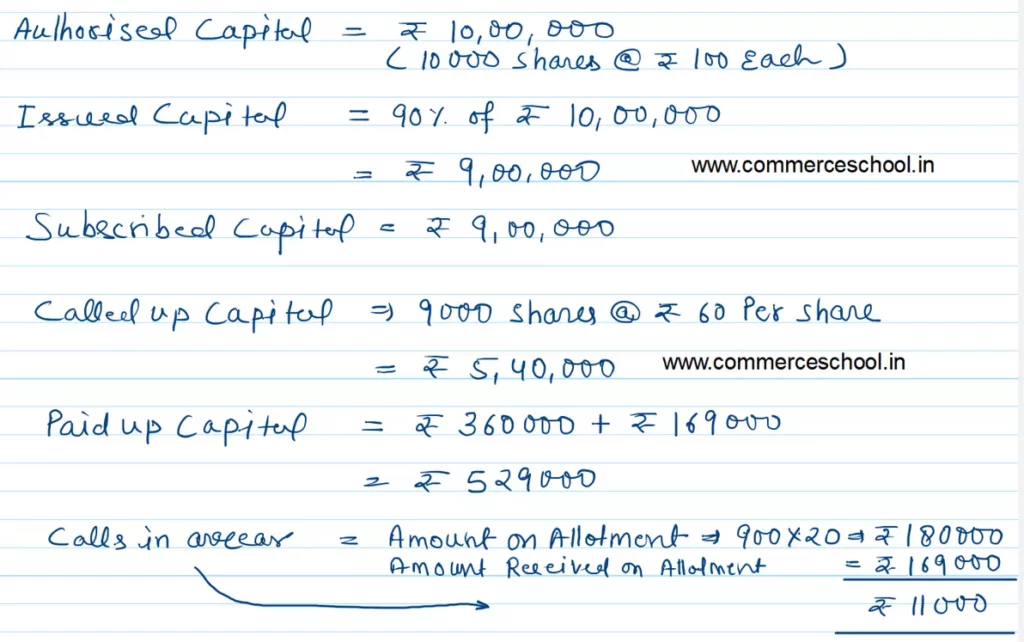 Authorised Capital = ₹ 10,00,000
(10000 shares @ ₹ 100 Each)
Issued Capital = 90% of ₹ 10,00,000
= ₹ 9,00,000
www.commerceschool.in
Subscribed Capital = ₹ 9,00,000
Called up Capital ⇒ 9000 shares @ ₹ 60 Per share
= ₹ 5,40,000
www.commerceschool.in
Paid up Capital = ₹ 360000 + ₹ 169000
= ₹ 529000
Calls in arrear = Amount on Allotment ⇒ 900×20 ⇒ ₹ 180000
Amount Received on Allotment = ₹ 169000
₹ 11000